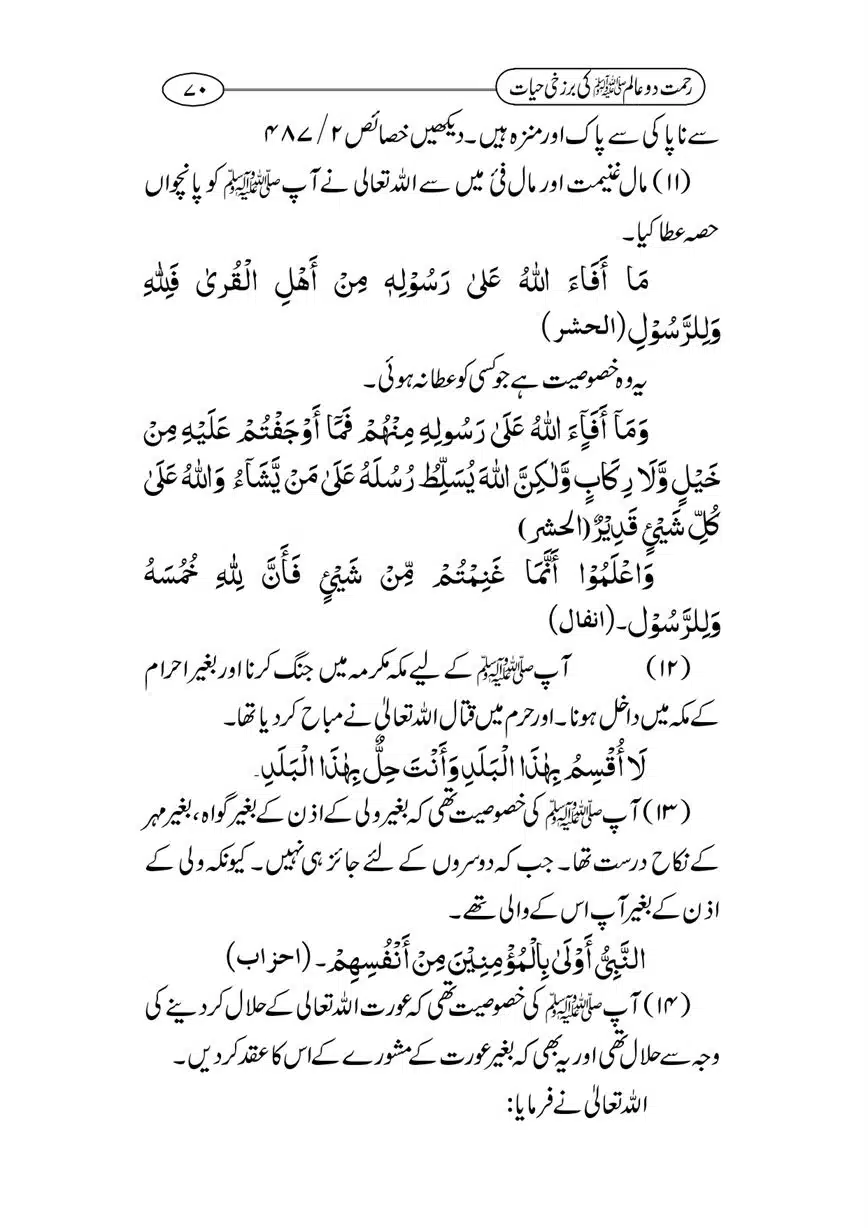 رحمت دو عالم ﷺ کی برزخی حیات
۷۰
سے ناپاکی سے پاک اور منزہ ہیں۔ دیکھیں خصائص ۲/ ۴۸۷
(۱۱) مال غنیمت اور مال فئ میں سے اللہ تعالی نے آپ ﷺ کو پانچواں
حصہ عطا کیا۔
مَا أَفَاءَ اللهُ عَلىٰ رَسُوْلِهٖ مِنْ أَهْلِ الْقُرىٰ فَلِلّٰهِ
وَلِلرَّسُوْلِ (الحشر)
یہ وہ خصوصیت ہے جو کسی کو عطا نہ ہوئی۔
وَمَآ أَفَآءَ اللهُ عَلَىٰ رَسُولِهٖ مِنْهُمْ فَمَآ أَوْجَفْتُمْ عَلَيْهِ مِنْ
خَيْلٍ وَّلَا رِكَابٍ وَّلٰكِنَّ اللهَ يُسَلِّطُ رُسُلَهُ عَلَىٰ مَنْ يَّشَآءُ وَاللهُ عَلَىٰ
كُلِّ شَيْئٍ قَدِيْرٌ (الحشر)
وَاعْلَمُوْا أَنَّمَا غَنِمْتُمْ مِّنْ شَيْئٍ فَأَنَّ لِلّٰهِ خُمُسَهُ
وَلِلرَّسُوْل۔ (انفال)
(۱۲) آپ ﷺ کے لیے مکہ مکرمہ میں جنگ کرنا اور بغیر احرام
کے مکہ میں داخل ہونا۔ اور حرم میں قتال اللہ تعالیٰ نے مباح کر دیا تھا۔
لَا أُقْسِمُ بِهٰذَا الْبَلَدِ وَأَنْتَ حِلٌّ بِهٰذَا الْبَلَدِ۔
(۱۳) آپ ﷺ کی خصوصیت تھی کہ بغیر ولی کے اذن کے بغیر گواہ، بغیر مہر
کے نکاح درست تھا۔ جب کہ دوسروں کے لئے جائز ہی نہیں۔ کیونکہ ولی کے
اذن کے بغیر آپ اس کے والی تھے۔
النَّبِيُّ أَوْلَىٰ بِالْمُؤْمِنِيْنَ مِنْ أَنْفُسِهِمْ۔ (احزاب)
(۱۴) آپ ﷺ کی خصوصیت تھی کہ عورت اللہ تعالی کے حلال کر دینے کی
وجہ سے حلال تھی اور یہ بھی کہ بغیر عورت کے مشورے کے اس کا عقد کر دیں۔
اللہ تعالیٰ نے فرمایا: